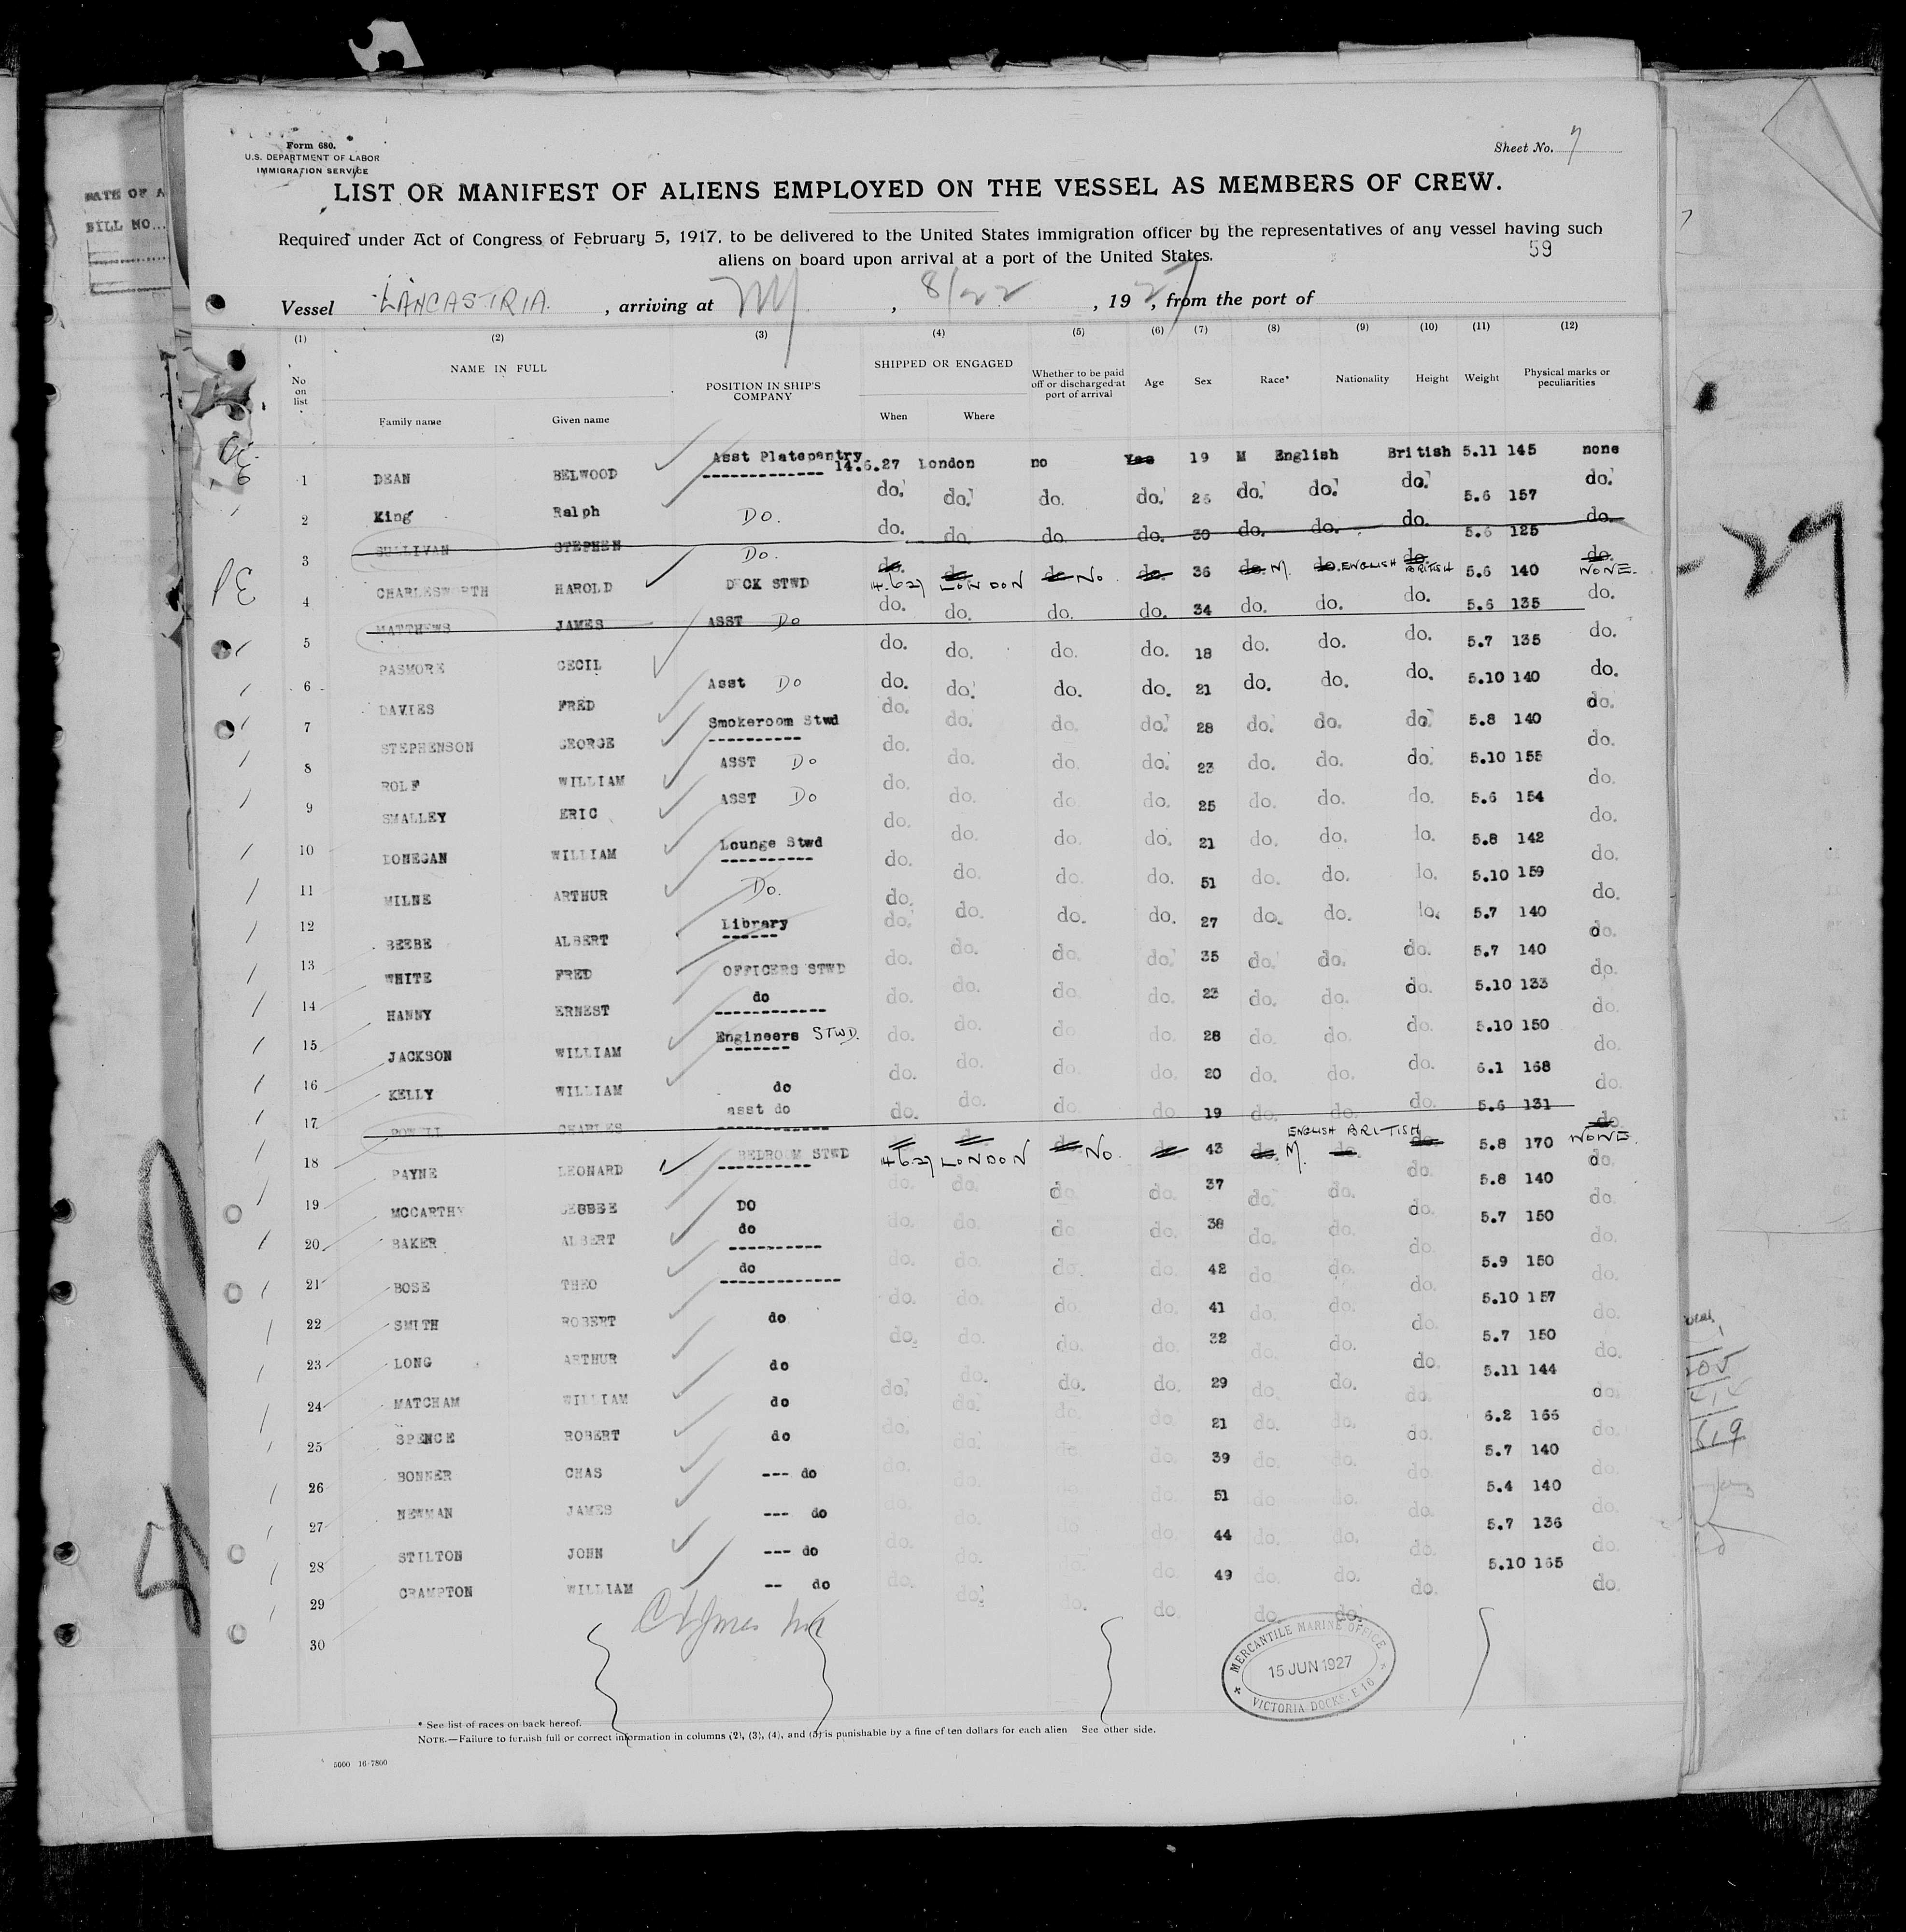 Form 680.
U.S. DEPARTMENT OF LABOR
IMMIGRATION SERVICE
Sheet No. 7
LIST OR MANIFEST OF ALIENS EMPLOYED ON THE VESSEL AS MEMBERS OF CREW.
Required under Act of Congress of February 5, 1917, to be delivered to the United States immigration officer by the representatives of any vessel having such
aliens on board upon arrival at a port of the United States.
59
Vessel LANCASTRIA , arriving at NY , 8/22 , 1927, from the port of
(1) (2) (3) (4) (5) (6) (7) (8) (9) (10) (11) (12)
No on list NAME IN FULL POSITION IN SHIP'S COMPANY SHIPPED OR ENGAGED Whether to be paid off or discharged at port of arrival Age Sex Race* Nationality Height Weight Physical marks or peculiarities
Family name Given name When Where
1 DEAN BELWOOD Asst Platepantry 14.6.27 London no Yes 19 M English British 5.11 145 none
2 King Ralph DO. do. do. do. do. 25 do. do. do. 5.6 157 do.
3 SULLIVAN STEPHEN DO. do. do. do. do. 30 do. do. do. 5.6 125 do.
4 CHARLESWORTH HAROLD DECK STWD 14.6.27 LONDON No 36 M. ENGLISH BRITISH 5.6 140 NONE.
5 MATTHEWS JAMES ASST DO do. do. do. do. 34 do. do. do. 5.6 135 do.
6 PASMORE CECIL Asst DO do. do. do. do. 18 do. do. do. 5.7 135 do.
7 DAVIES FRED Smokeroom Stwd do. do. do. do. 21 do. do. do. 5.10 140 do.
8 STEPHENSON GEORGE ASST DO do. do. do. do. 28 do. do. do. 5.8 140 do.
9 ROLF WILLIAM ASST DO do. do. do. do. 23 do. do. do. 5.10 155 do.
10 SMALLEY ERIC Lounge Stwd do. do. do. do. 25 do. do. do. 5.6 154 do.
11 DONEGAN WILLIAM DO. do. do. do. do. 21 do. do. do. 5.8 142 do.
12 MILNE ARTHUR Library do. do. do. do. 51 do. do. do. 5.10 159 do.
13 BEEBE ALBERT OFFICERS STWD do. do. do. do. 27 do. do. do. 5.7 140 do.
14 WHITE FRED do do. do. do. do. 35 do. do. do. 5.7 140 do.
15 HANNY ERNEST Engineers STWD. do. do. do. do. 23 do. do. do. 5.10 133 do.
16 JACKSON WILLIAM do do. do. do. do. 28 do. do. do. 5.10 150 do.
17 KELLY WILLIAM asst do do. do. do. do. 20 do. do. do. 6.1 168 do.
18 POWELL CHARLES do. do. do. do. 19 do. do. do. 5.6 131 do.
19 PAYNE LEONARD BEDROOM STWD 14.6.27 LONDON No. 43 M. ENGLISH BRITISH 5.8 170 NONE.
20 MCCARTHY DO do. do. do. do. 37 do. do. do. 5.8 140 do.
21 BAKER ALBERT do do. do. do. do. 38 do. do. do. 5.7 150 do.
22 BOSE THEO do do. do. do. do. 42 do. do. do. 5.9 150 do.
23 SMITH ROBERT do do. do. do. do. 41 do. do. do. 5.10 157 do.
24 LONG ARTHUR do do. do. do. do. 32 do. do. do. 5.7 150 do.
25 MATCHAM WILLIAM do do. do. do. do. 29 do. do. do. 5.11 144 do.
26 SPENCE ROBERT do do. do. do. do. 21 do. do. do. 6.2 166 do.
27 BONNER CHAS --- do do. do. do. do. 39 do. do. do. 5.7 140 do.
28 NEWMAN JAMES --- do do. do. do. do. 51 do. do. do. 5.4 140 do.
29 STILTON JOHN --- do do. do. do. do. 44 do. do. do. 5.7 136 do.
30 CRAMPTON WILLIAM -- do do. do. do. do. 49 do. do. do. 5.10 165 do.
MERCANTILE MARINE OFFICE
15 JUN 1927
VICTORIA DOCKS, E 16
* See list of races on back hereof.
NOTE.—Failure to furnish full or correct information in columns (2), (3), (4), and (5) is punishable by a fine of ten dollars for each alien See other side.
5000 16-7800